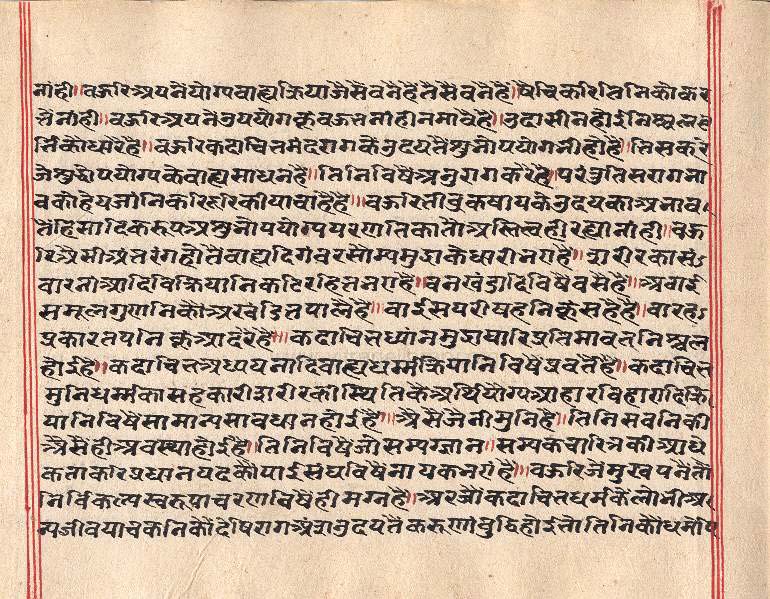 नांही॥बऊरिअपनैयोग्यबाह्यक्रियाजैसैंबनैहैंतैसैंबनैहैं॥षैंचिकरितिनिकौंकर
तैनांही॥बऊरिअपनैउपयोगकूंबऊतनांहीनमावैहैं॥उदासीनहोईनिश्चलवृ
त्तिकौंधारैहैं॥बऊरिकदाचितमंदरागकेउदयतैंशुभोपयोगभीहोहै॥तिसकरि
जेशुद्धोपयोग्यकेबाह्यसाधनहैं॥तिनिविषैअनुरागकरैहैं॥परंतुतिसरागभा
वकौंहेयजांनिकरिदूरिकीयाचाहैहैं॥बऊरितीव्रकषायकेउदयकाअभाव
तैंहिंसादिकरूपअशुभोपयोग्यपरणतिकातोअस्तित्वहीरह्यानांही॥बऊ
रिअैसीअंतरंगहोतैंबाह्यदिगंबरसौम्यमुद्राकेधारीभएहैं॥शरीरकासं
वारनांआदिविक्रियानिकरिरहितभएहैं॥बनखंडादिविषैवसैहैं॥अठाई
समूलगुणनिकौंअखंडितपालैहैं॥बाईसपरीषहनिकूंसहैहैं॥बारह
प्रकारतपनिकूंआदरैहैं॥कदाचितध्यांनमुद्राधारिप्रतिमावतनिश्चल
होईहैं॥कदाचितअध्ययनादिबाह्यधर्म्मक्रियानिविषैप्रवर्तैहैं॥कदाचित
मुनिधर्म्मकासहकारीशरीरकीस्थितिकैअर्थियोग्यआहारविहारादिक्रि
यानिविषैसामान्यसावधानहोईहैं॥अैसेजैनीमुनिहैं॥तिनिसबनिकी
अैसैहीअवस्थाहोईहै॥तिनिविषैजोसम्यग्ज्ञान॥सम्यकचारित्रकीआधि
कताकरिप्रधानपदकौंपाईसंघविषैनायकभएहैं॥बऊरिजेमुख्यपनैतौ
निर्विकल्पस्वरूपाचरणविषैहीमग्नहैं॥अरजोकदाचितधर्मकेलोभीअ
न्यजीवयाचकतिनिकौंदेषिरागअंशउदयतैंकरुणाबुद्धिहोईतोतिनिकौंधर्मोप